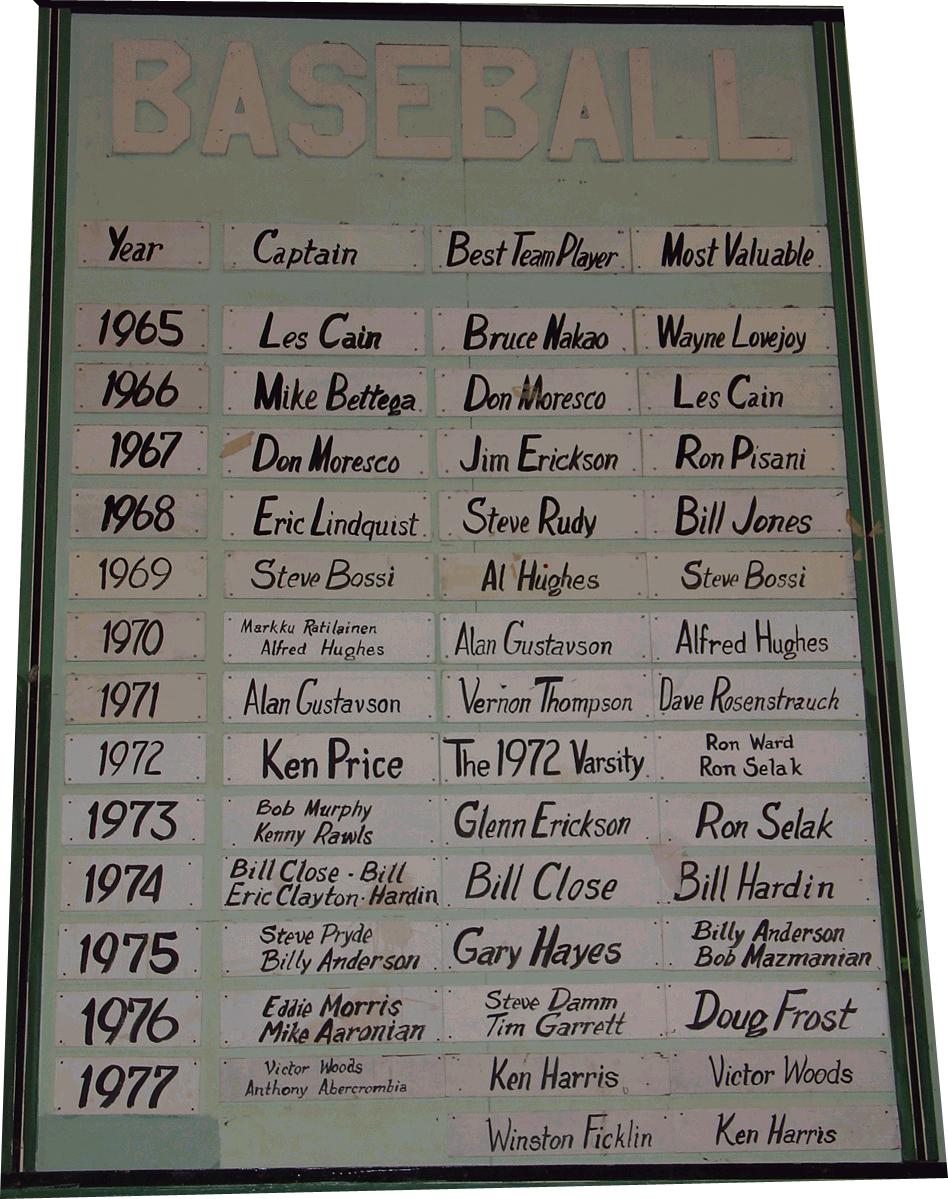 BASEBALL
Year Captain Best Team Player Most Valuable
1965 Les Cain Bruce Nakao Wayne Lovejoy
1966 Mike Bettega Don Moresco Les Cain
1967 Don Moresco Jim Erickson Ron Pisani
1968 Eric Lindquist Steve Rudy Bill Jones
1969 Steve Bossi Al Hughes Steve Bossi
1970 Markku Ratilainen
Alfred Hughes Alan Gustavson Alfred Hughes
1971 Alan Gustavson Vernon Thompson Dave Rosenstrauch
1972 Ken Price The 1972 Varsity Ron Ward
Ron Selak
1973 Bob Murphy
Kenny Rawls Glenn Erickson Ron Selak
1974 Bill Close - Bill
Eric Clayton - Hardin Bill Close Bill Hardin
1975 Steve Pryde
Billy Anderson Gary Hayes Billy Anderson
Bob Mazmanian
1976 Eddie Morris
Mike Aaronian Steve Damm
Tim Garrett Doug Frost
1977 Victor Woods
Anthony Abercrombia Ken Harris Victor Woods
Winston Ficklin Ken Harris